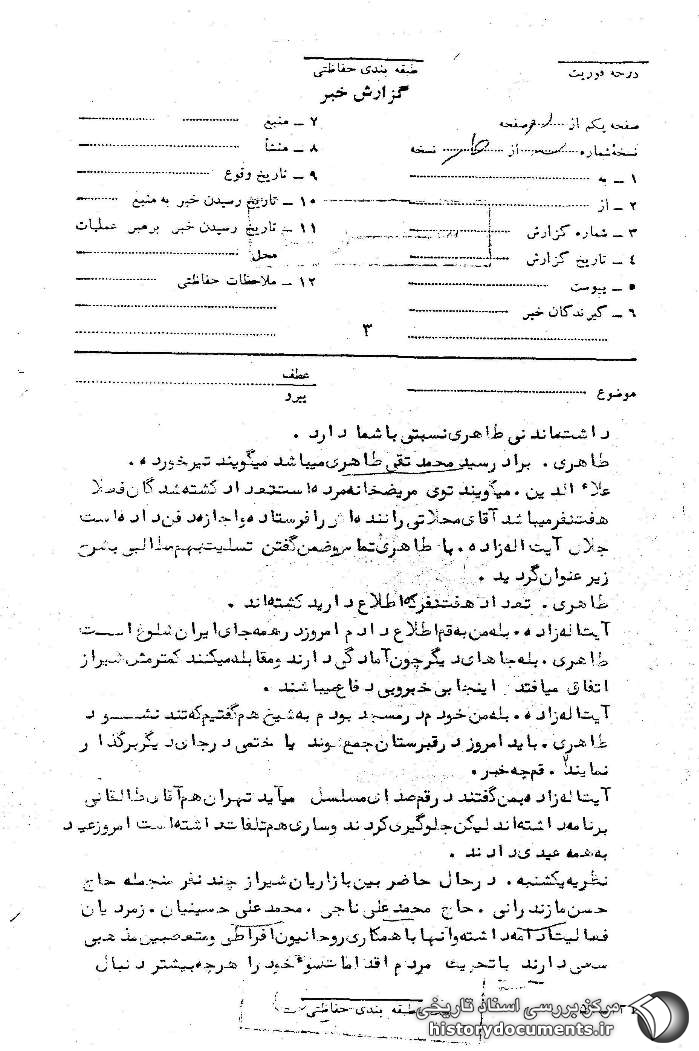 درجه فوریت
طبقه بندی حفاظتی
گزارش خبر
صفحه یکم از صفحه
نسخه شماره از نسخه
۱ ـ به
۲ ـ از
۳ ـ شماره گزارش
۴ ـ تاریخ گزارش
۵ ـ پیوست
۶ ـ گیرندگان خبر
۷ ـ منبع
۸ ـ منشأ
۹ ـ تاریخ وقوع
۱۰ ـ تاریخ رسیدن خبر به منبع
۱۱ ـ تاریخ رسیدن خبر برهبر عملیات
محل
۱۲ ـ ملاحظات حفاظتی
۳
موضوع
عطف
پیرو
داشته‌اند نی طاهری نسبتی با شما دارد .
طاهری . برادر سید محمد تقی طاهری میباشد میگویند تیر خورده .
علاء الدین . میگویند توی مریضخانه مرده است تعداد کشته شدگان فعلا
هفت نفر میباشد آقای محلاتی راننده‌اش را فرستاده و اجازه دفن داده است
جلال آیت اله زاده . با طاهری تماس و ضمن گفتن تسلیت بهم مطالبی بشرح
زیر عنوان گردید .
طاهری . تعداد هفت نفر که اطلاع دارید کشته‌اند .
آیت اله زاده . بله من به قم اطلاع دادم امروز در همه جای ایران شلوغ است
طاهری . بله جاهای دیگر چون آمادگی دارند و مقابله میکنند کمتر مثل شیراز
اتفاق میافتد اینجا بی خبر و بی دفاع میباشند .
آیت اله زاده . بله من خودم در مسجد بودم به شیخ هم گفتیم که تند نشود
طاهری . باید امروز در قبرستان جمع شوند یا ختمی در جای دیگر برگذار
نمایند . قم چه خبر .
آیت اله زاده بمن گفتند در قم صدای مسلسل میآید تهران هم آقای طالقانی
برنامه داشته‌اند لیکن جلوگیری کردند و ساری هم تلفات داشته است امروز عید
به همه عیدی دادند .
نظریه یکشنبه . در حال حاضر بین بازاریان شیراز چند نفر منجمله حاج
حسن مازندرانی . حاج محمد علی ناجی . محمد علی حسینیان . زمردیان
فعالیت داشته و آنها با همکاری روحانیون افراطی و متعصبین مذهبی
سعی دارند با تحریک مردم اقدامات سوء خود را هرچه بیشتر دنبال
طبقه بندی حفاظتی
مرکز بررسی اسناد تاریخی
historydocuments.ir